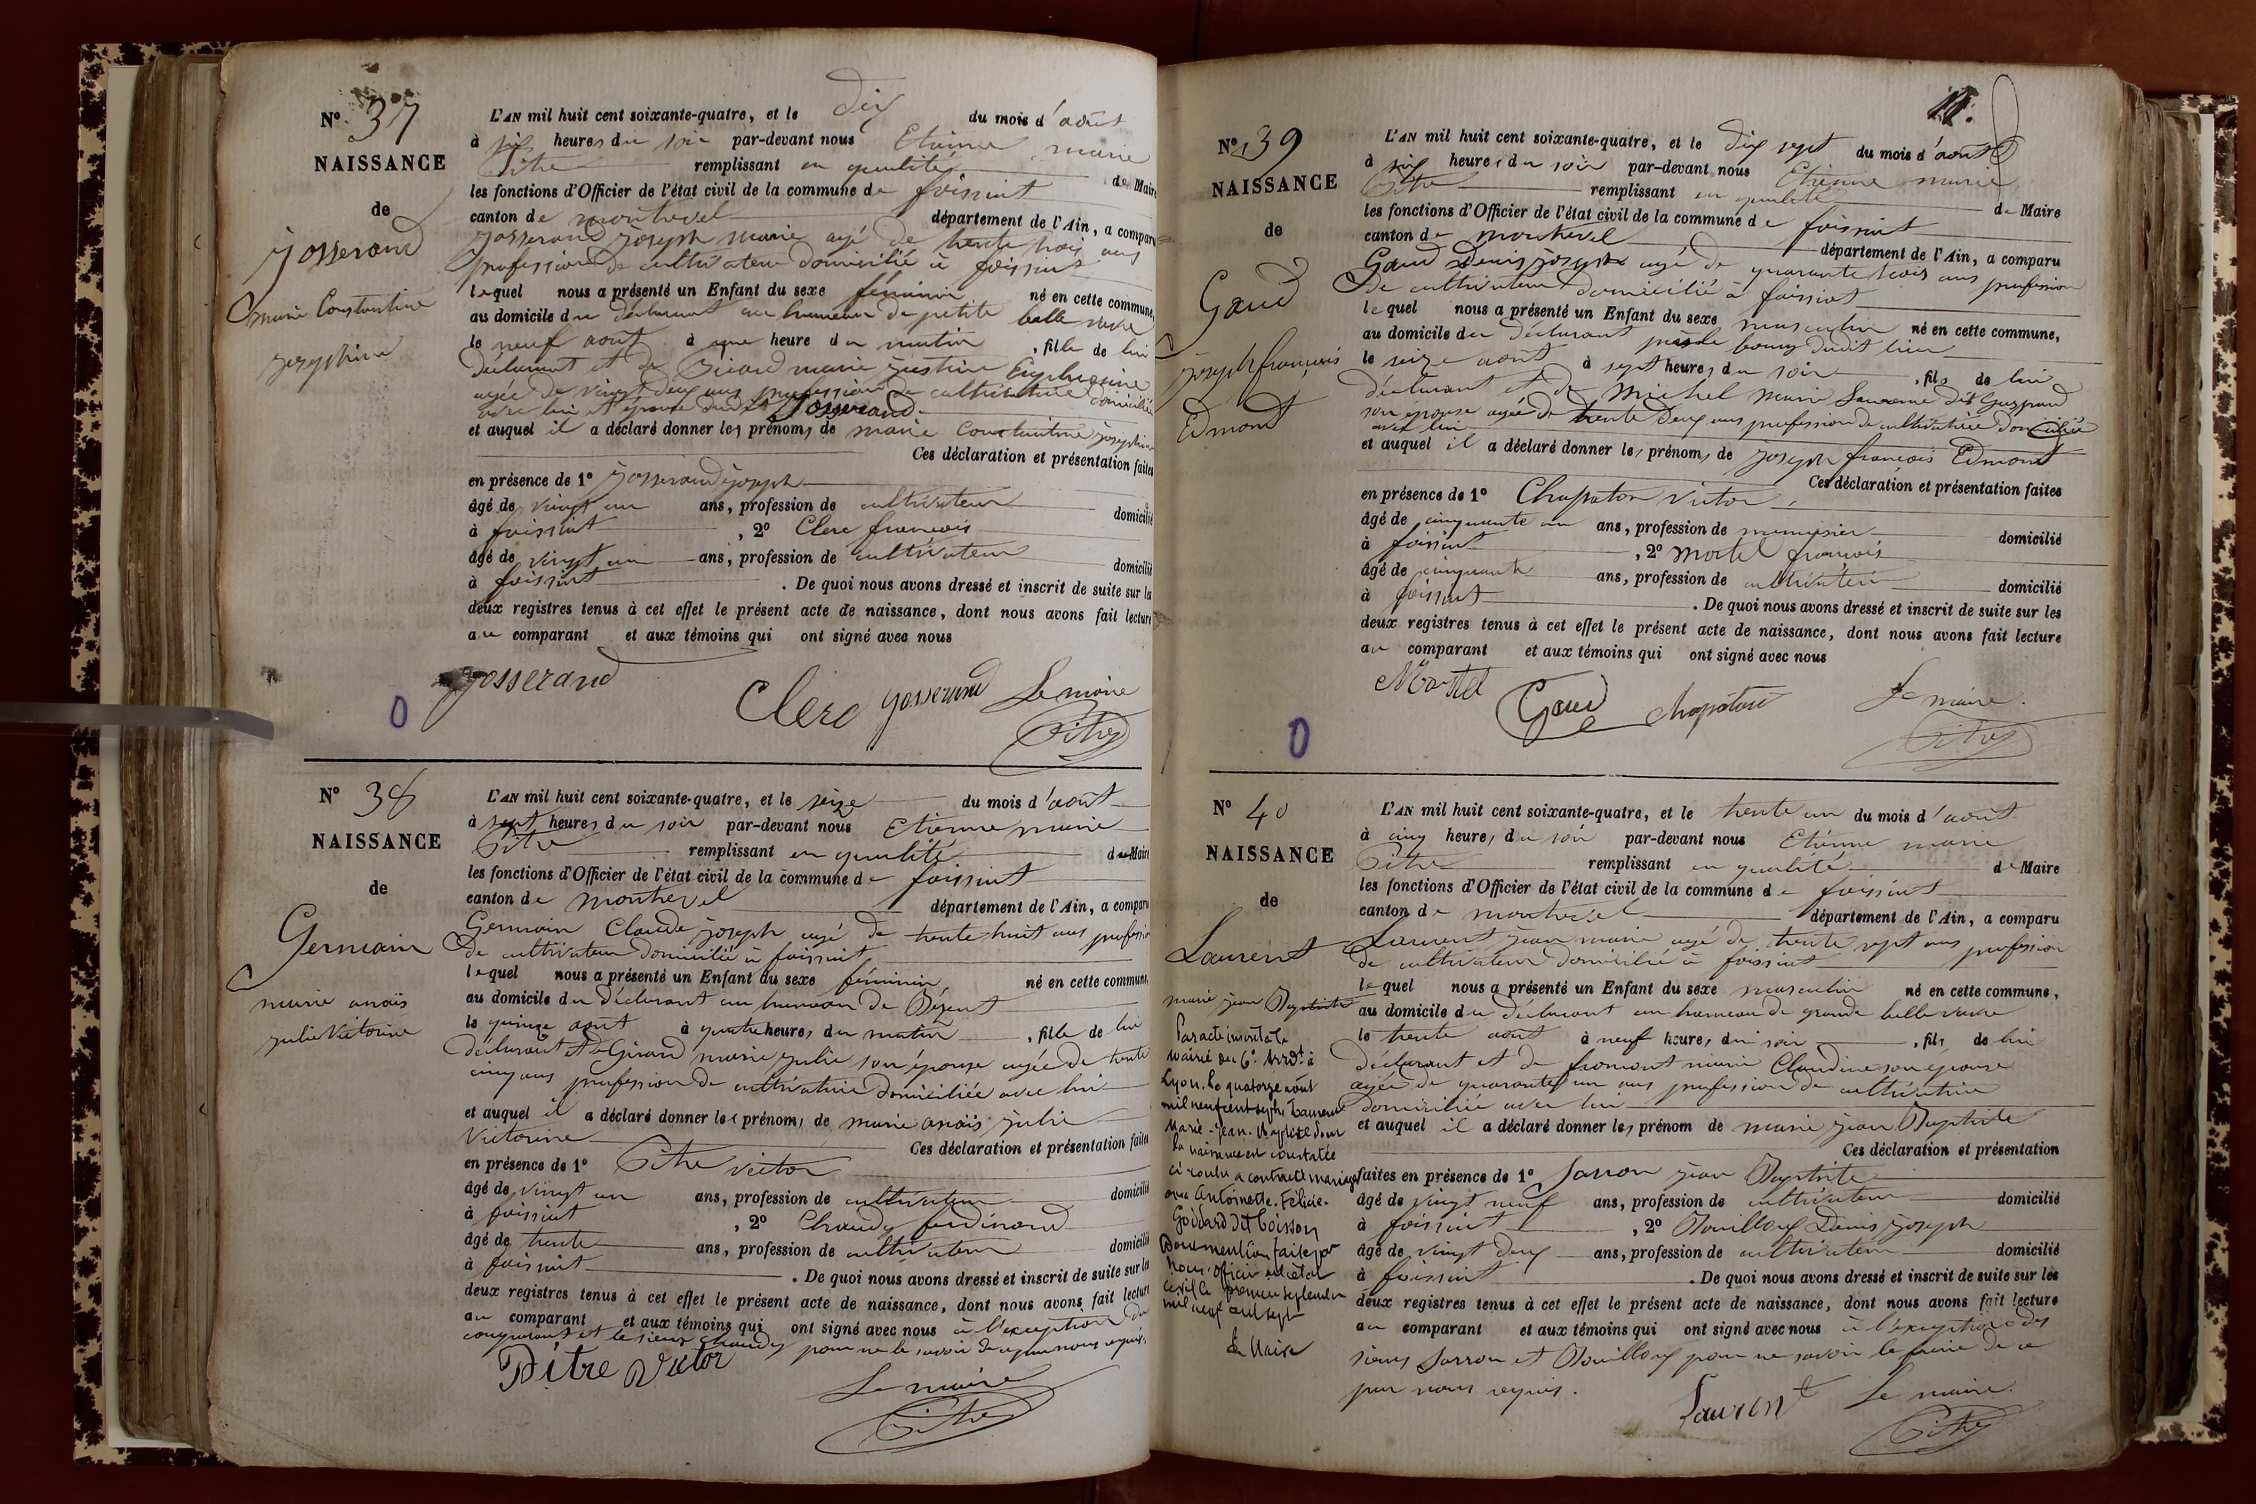 N° 37
NAISSANCE
de
Josserand
marie Constantine
josephine
L'AN mil huit cent soixante-quatre, et le dix du mois d'août
à six heures du soir par-devant nous Etienne marie
Pitre remplissant en qualité de Maire
les fonctions d'Officier de l'état civil de la commune de foissiat
canton de montrevel département de l'Ain, a comparu
Josserand joseph marie agé de trente trois ans
profession de cultivateur domicilié à foissiat
lequel nous a présenté un Enfant du sexe féminin né en cette commune,
au domicile du déclarant au hameau de petite belle vavre
le neuf août à une heure du matin, fille de lui
déclarant et de marie justine Euphrosine
agée de vingt deux ans profession de cultivatrice domiciliée
avec lui et épouse dudit Josserand
et auquel il a déclaré donner les prénoms de marie Constantine josephine
Ces déclaration et présentation faites
en présence de 1° Josserand joseph
âgé de vingt un ans, profession de cultivateur domicilié
à foissiat, 2° Clerc françois
âgé de vingt un ans, profession de cultivateur domicilié
à foissiat. De quoi nous avons dressé et inscrit de suite sur les
deux registres tenus à cet effet le présent acte de naissance, dont nous avons fait lecture
au comparant et aux témoins qui ont signé avec nous
Josserand Clerc Josserand Le maire
Pitre
0
N° 38
NAISSANCE
de
Germain
marie anaïs
julie Victorine
L'AN mil huit cent soixante-quatre, et le seize du mois d'août
à sept heures du soir par-devant nous Etienne marie
Pitre remplissant en qualité de Maire
les fonctions d'Officier de l'état civil de la commune de foissiat
canton de montrevel département de l'Ain, a comparu
Germain Claude joseph agé de trente huit ans profession
de cultivateur domicilié à foissiat
lequel nous a présenté un Enfant du sexe féminin né en cette commune,
au domicile du déclarant au hameau de
le quinze août à quatre heures du matin, fille de lui
déclarant et de Girard marie julie son épouse agée de trente
cinq ans profession de cultivatrice domiciliée avec lui
et auquel il a déclaré donner les prénoms de marie anaïs julie
Victorine Ces déclaration et présentation faites
en présence de 1° Pitre victor
âgé de vingt un ans, profession de cultivateur domicilié
à foissiat, 2° Chaudy ferdinand
âgé de trente ans, profession de cultivateur domicilié
à foissiat. De quoi nous avons dressé et inscrit de suite sur les
deux registres tenus à cet effet le présent acte de naissance, dont nous avons fait lecture
au comparant et aux témoins qui ont signé avec nous à l'exception du
comparant et le sieur Chaudy pour ne le savoir de ce par nous requis.
Pitre Victor Le maire
Pitre
11.
N° 39
NAISSANCE
de
Gaud
joseph françois
Edmont
L'AN mil huit cent soixante-quatre, et le dix sept du mois d'août
à six heures du soir par-devant nous Etienne marie
Pitre remplissant en qualité de Maire
les fonctions d'Officier de l'état civil de la commune de foissiat
canton de montrevel département de l'Ain, a comparu
Gaud Denis joseph agé de quarante trois ans profession
de cultivateur domicilié à foissiat
lequel nous a présenté un Enfant du sexe masculin né en cette commune,
au domicile du déclarant près le bourg dudit lieu
le seize août à sept heures du soir, fils de lui
déclarant et de Michel marie dit
son épouse agée de trente deux ans profession de cultivatrice domiciliée
avec lui
et auquel il a déclaré donner les prénoms de joseph françois Edmont
Ces déclaration et présentation faites
en présence de 1° Chapaton victor
âgé de cinquante un ans, profession de menuisier domicilié
à foissiat, 2° mortel françois
âgé de cinquante ans, profession de cultivateur domicilié
à foissiat. De quoi nous avons dressé et inscrit de suite sur les
deux registres tenus à cet effet le présent acte de naissance, dont nous avons fait lecture
au comparant et aux témoins qui ont signé avec nous
Mortel Gaud Chapaton Le maire.
Pitre
0
N° 40
NAISSANCE
de
Laurent
marie jean Baptiste
Par acte inscrit à la
mairie du 6e Arrdt à
Lyon, le quatorze août
mil neuf cent sept, Laurent
Marie-Jean-Baptiste dont
la naissance est constatée
ci contre a contracté mariage
avec Antoinette-Félicie-
Goddard dit Coisson
Dont mention faite par
Nous officier de l'état
civil le premier septembre
mil neuf cent sept
Le Maire
L'AN mil huit cent soixante-quatre, et le trente un du mois d'août
à cinq heures du soir par-devant nous Etienne marie
Pitre remplissant en qualité de Maire
les fonctions d'Officier de l'état civil de la commune de foissiat
canton de montrevel département de l'Ain, a comparu
Laurent jean marie agé de trente sept ans profession
de cultivateur domicilié à foissiat
lequel nous a présenté un Enfant du sexe masculin né en cette commune,
au domicile du déclarant au hameau de grande belle vavre
le trente août à neuf heures du soir, fils de lui
déclarant et de fromont marie Claudine son épouse
agée de quarante un ans profession de cultivatrice
domiciliée avec lui
et auquel il a déclaré donner les prénom de marie jean Baptiste
Ces déclaration et présentation
faites en présence de 1° Sarron jean Baptiste
âgé de vingt neuf ans, profession de cultivateur domicilié
à foissiat, 2° Bouilloux Denis joseph
âgé de vingt deux ans, profession de cultivateur domicilié
à foissiat. De quoi nous avons dressé et inscrit de suite sur les
deux registres tenus à cet effet le présent acte de naissance, dont nous avons fait lecture
au comparant et aux témoins qui ont signé avec nous à l'exception des
sieurs Sarron et Bouilloux pour ne savoir le faire de ce
par nous requis.
Laurent Le maire.
Pitre